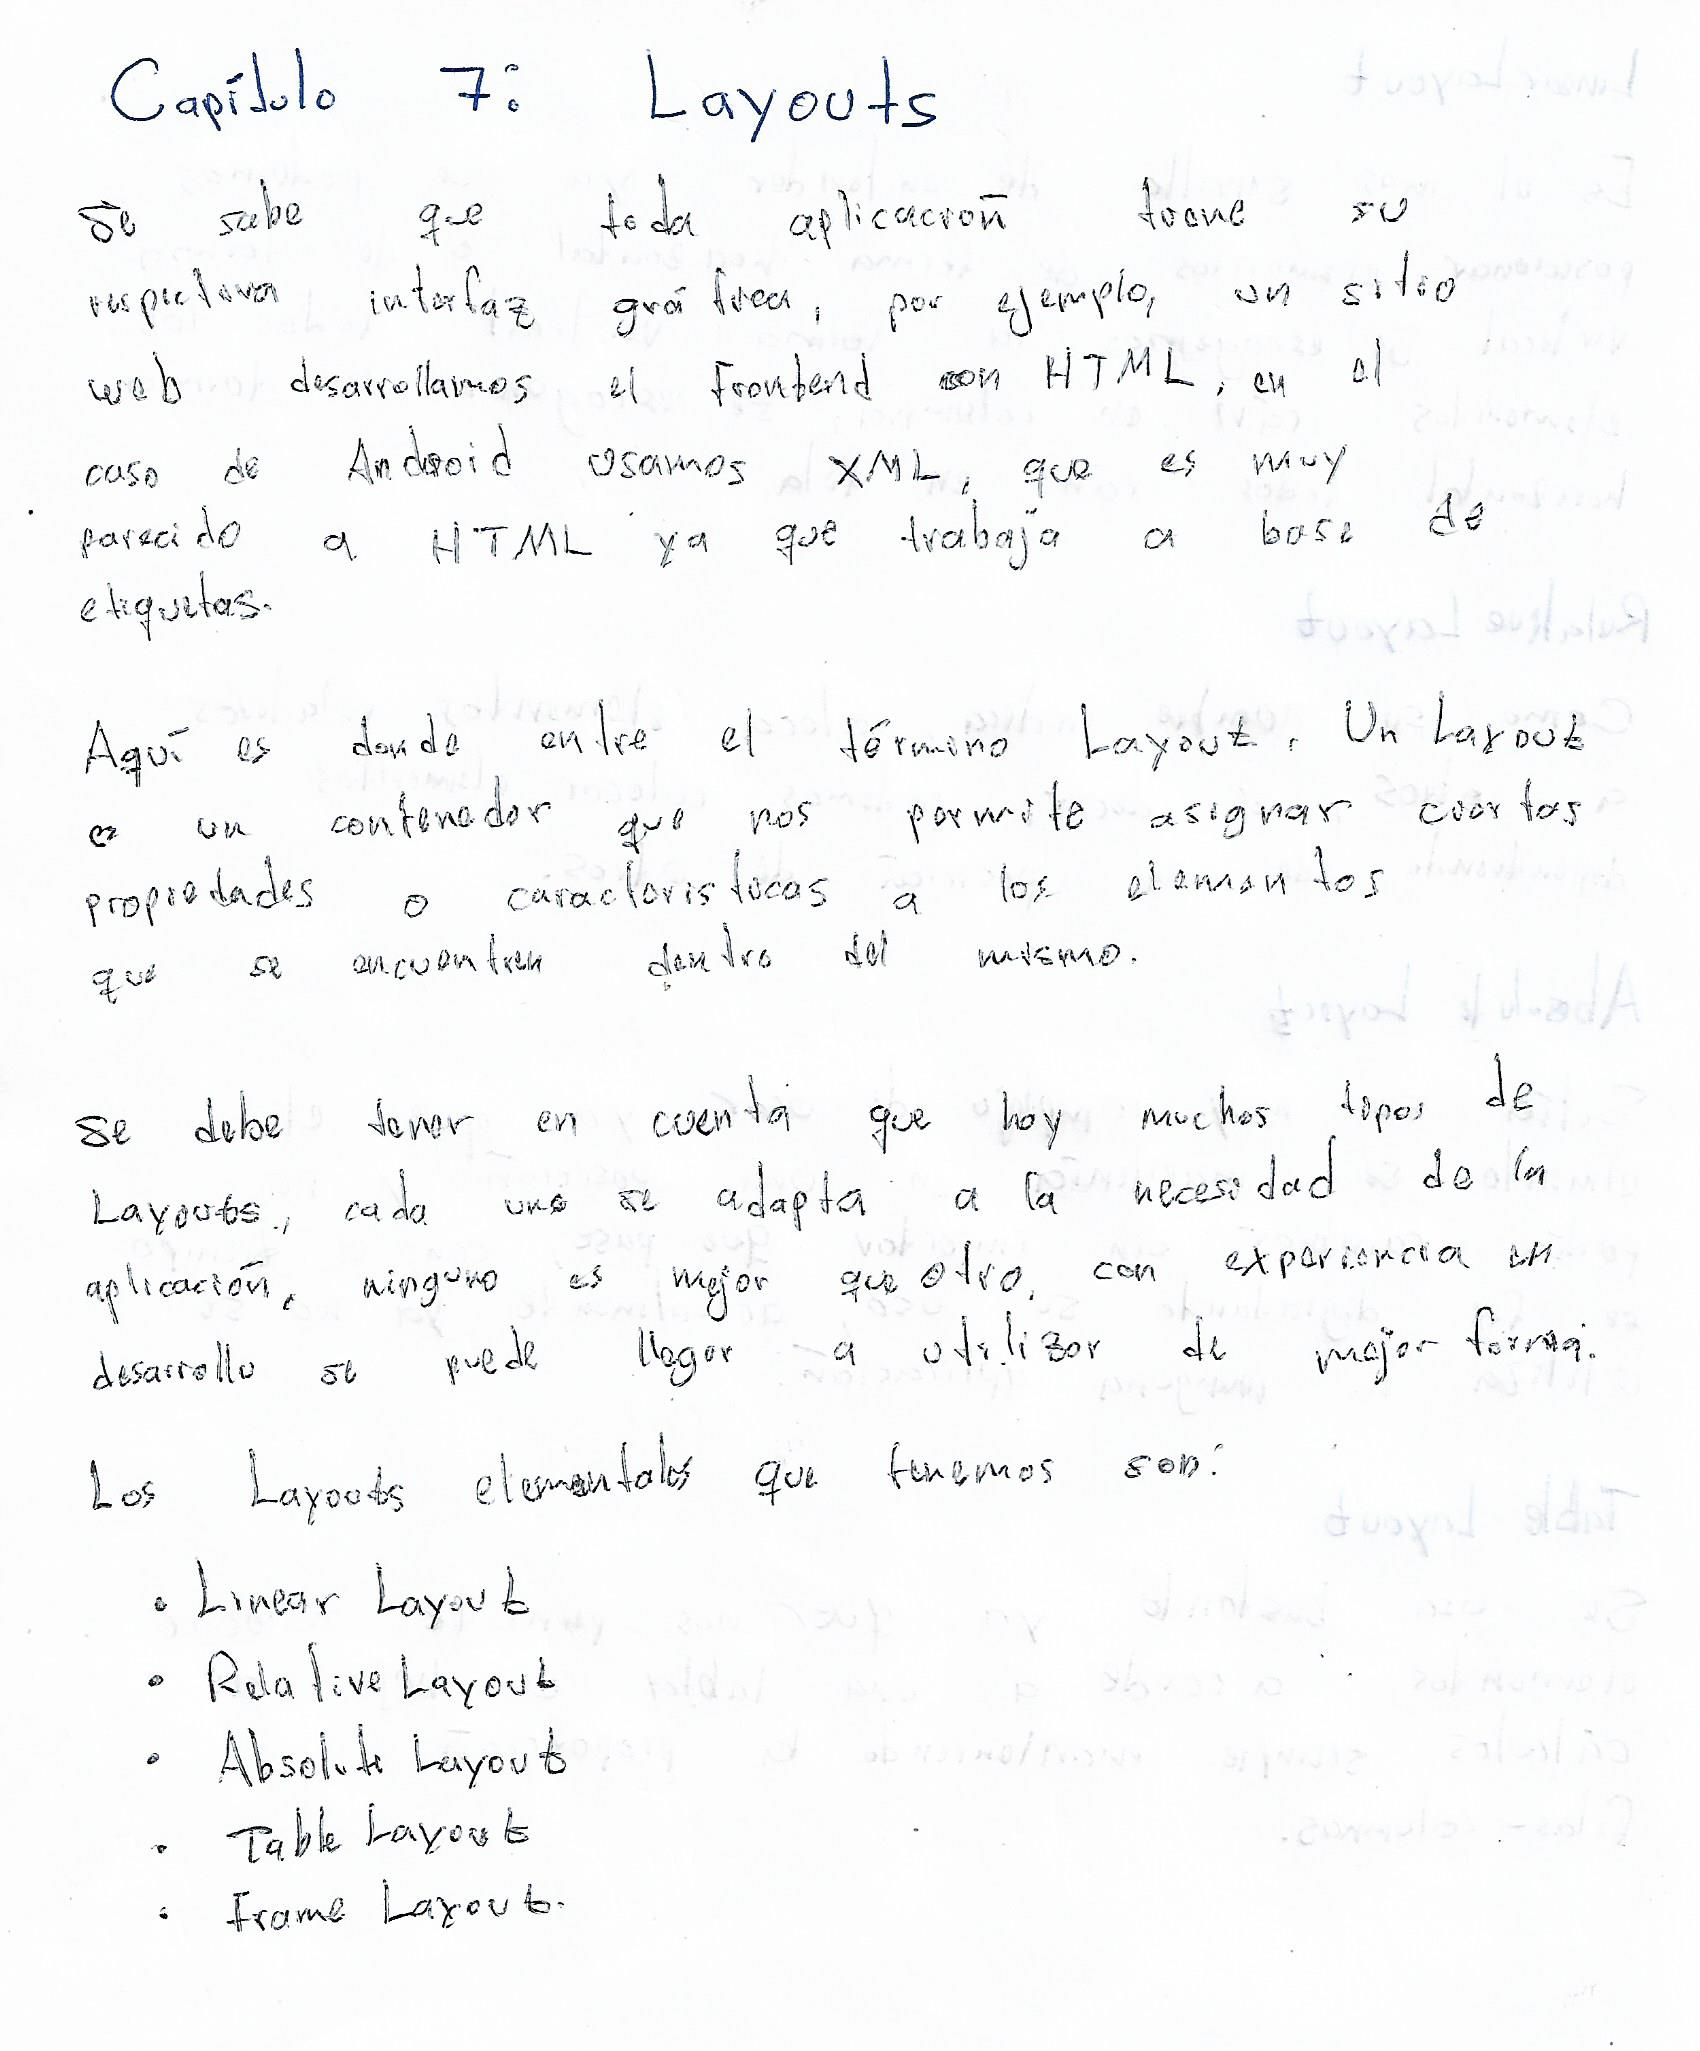 Capítulo 7: Layouts
Se sabe que toda aplicación tiene su
respectiva interfaz gráfica, por ejemplo, un sitio
web desarrollamos el Frontend con HTML, en el
caso de Android usamos XML, que es muy
parecido a HTML ya que trabaja a base de
etiquetas.
Aquí es donde entre el término Layout. Un Layout
es un contenedor que nos permite asignar ciertas
propiedades o características a los elementos
que se encuentren dentro del mismo.
Se debe tener en cuenta que hay muchos tipos de
Layouts, cada uno se adapta a la necesidad de la
aplicación, ninguno es mejor que otro, con experiencia en
desarrollo se puede llegar a utilizar de mejor forma.
Los Layouts elementales que tenemos son:
• Linear Layout
• Relative Layout
• Absolute Layout
• Table Layout
• Frame Layout.